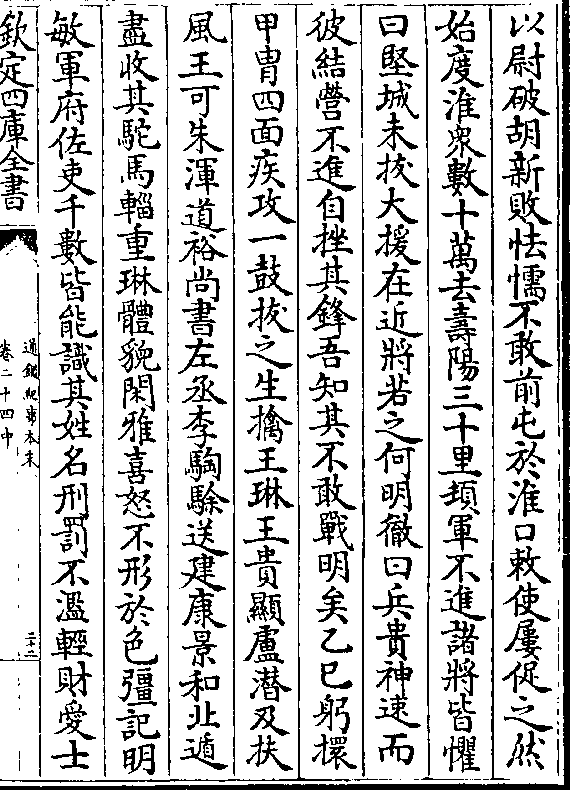 以尉破胡新敗怯懦不敢前屯於淮口敕使屢促之然
始度淮衆數十萬去壽陽三十里頓軍不進諸將皆懼
曰堅城未拔大援在近將若之何明徹曰兵貴神速而
彼結營不進自挫其鋒吾知其不敢戰明矣乙巳躬擐
甲胄四面疾攻一鼓拔之生擒王琳王貴顯盧潛及扶
風王可朱渾道裕尚書左丞李騊駼送建康景和北遁
盡收其駝馬輜重琳體貌閑雅喜怒不形於色彊記明
敏軍府佐吏千數皆能識其姓名刑罰不濫輕財愛士
欽定四庫全書
通鑑紀事本末
卷二十四中
二十二